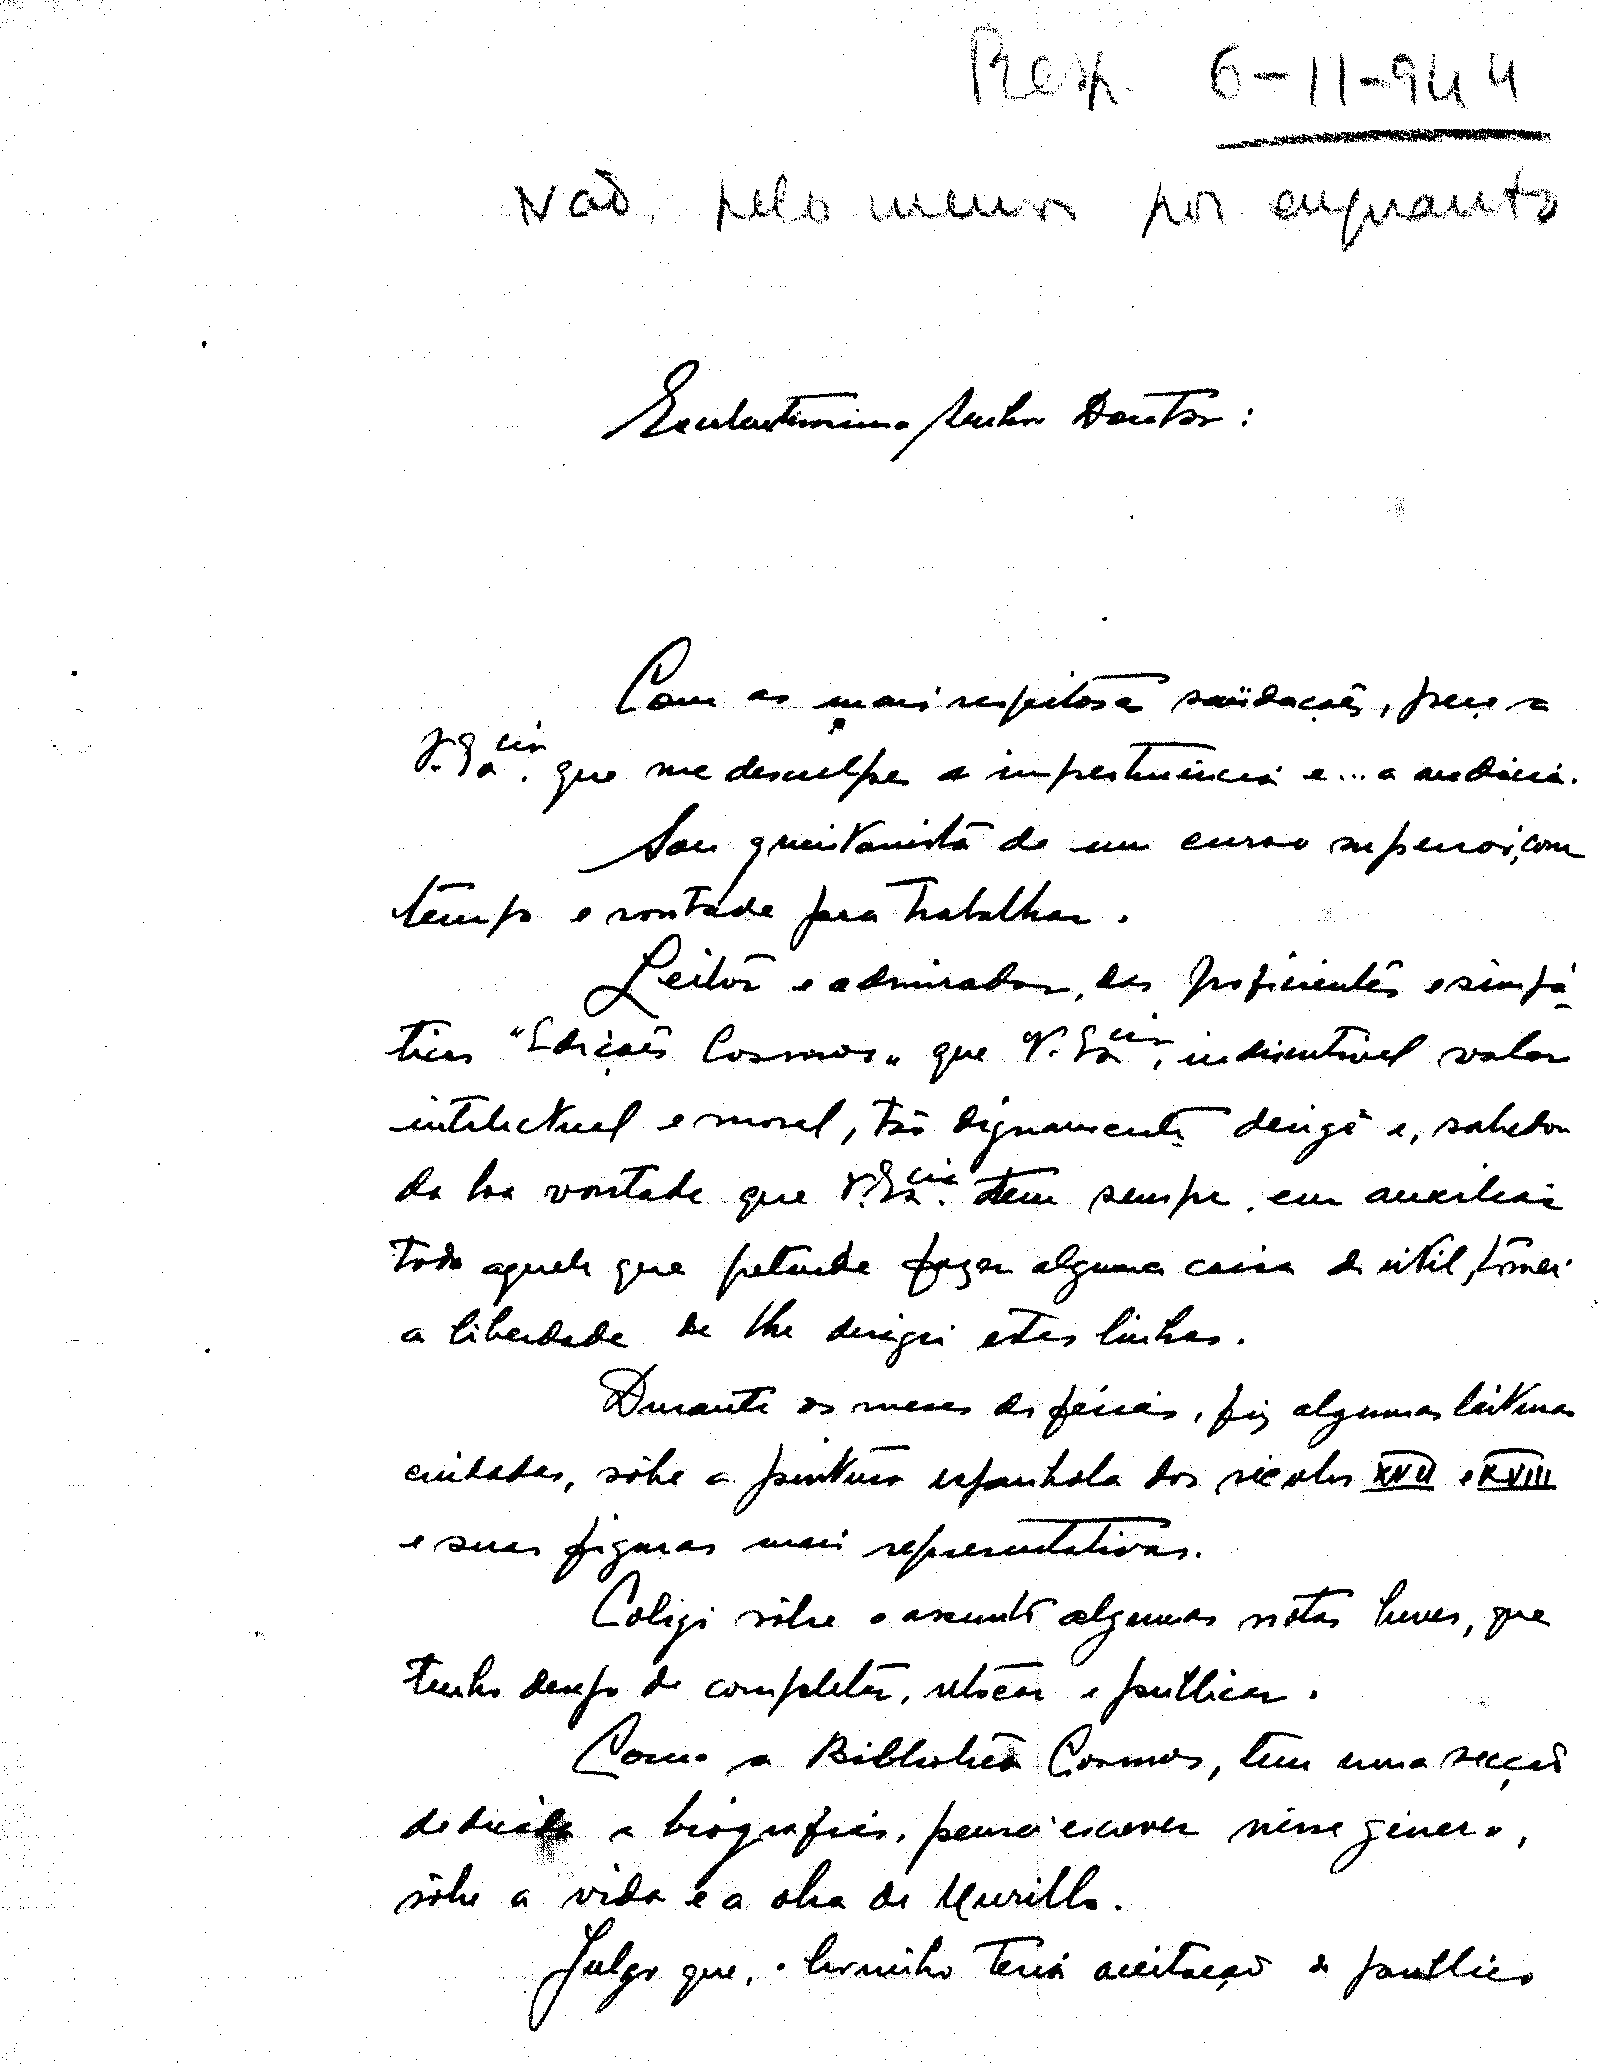 Resp. 6-11-944
Não, pelo menos por enquanto
Excelentíssimo Senhor Doutor:
Com as mais respeitosas saüdações, peço a
V. Ex.cia. que me desculpe a impertinência e... a audácia.
Sou quintanista de um curso superior, com
tempo e vontade para trabalhar.
Leitor e admirador, das proficientes e simpá-
ticas "Edições Cosmos" que V. Ex.cia, indiscutível valor
intelectual e moral, tão dignamente dirige e, sabedor
da boa vontade que V. Ex.cia. tem sempre, em auxiliar
todo aquele que pretende fazer alguma coisa de util, tomei
a liberdade de lhe dirigir estas linhas.
Durante os meses de férias, fiz algumas leituras
cuidadas, sôbre a pintura espanhola dos séculos XVII e XVIII
e suas figuras mais representativas.
Coligi sôbre o assunto algumas notas breves, que
tenho desejo de completar, retocar e publicar.
Como a Biblioteca Cosmos, tem uma secção
dedicada a biografias, pensei escrever nesse género,
sôbre a vida e a obra de Murillo.
Julgo que, o livrinho teria aceitação do público